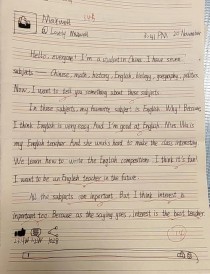 Maxwell
@ Lovely_Maxwell
7:41 PM 21st November
Hello, everyone! I'm a student in China. I have seven
subjects — Chinese, math, history, English, biology, geography, politics.
Now, I want to tell you something about those subjects.
In those subjects, my favorite subject is English. Why? Because
I think English is very easy. And I'm good at English. Mrs. Wu is
my English teacher. And she works hard to make the class interesting.
We learn how to write the English compositions. I think it's fun!
I want to be an English teacher in the future.
All the subjects are important. But I think interest is
important too. Because as the saying goes, interest is the best teacher.